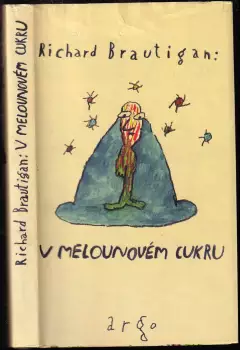 Richard Brautigan: V MELOUNOVÉM CUKRU
Richard Brautigan:
V MELOUNOVÉM CUKRU
argo